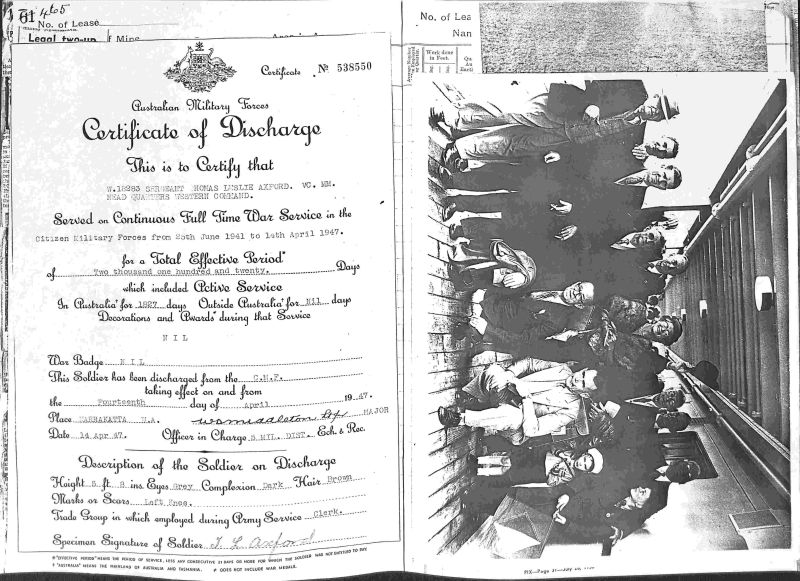 61 465
No. of Lease
Legal two-up
of Mine
Certificate No 538550
Australian Military Forces
Certificate of Discharge
This is to Certify that
W.18263 SERGEANT THOMAS LESLIE AXFORD. VC. MM.
HEAD QUARTERS WESTERN COMMAND.
Served on Continuous Full Time War Service in the
Citizen Military Forces from 25th June 1941 to 14th April 1947.
for a Total Effective Period*
of Two thousand one hundred and twenty. Days
which included Active Service
In Australia† for 1827 days Outside Australia† for Nil days
Decorations and Awards# during that Service
NIL
War Badge NIL
This Soldier has been discharged from the C.M.F.
taking effect on and from
the Fourteenth day of April 1947.
Place KARRAKATTA W.A. MAJOR
Date 14 Apr 47. Officer in Charge 5 MIL. DIST. Ech. & Rec.
Description of the Soldier on Discharge
Height 5 ft. 8 ins. Eyes Grey Complexion Dark Hair Brown
Marks or Scars Left Knee.
Trade Group in which employed during Army Service Clerk.
Specimen Signature of Soldier T L Axford
* "EFFECTIVE PERIOD" MEANS THE PERIOD OF SERVICE, LESS ANY CONSECUTIVE 21 DAYS OR MORE FOR WHICH THE SOLDIER WAS NOT ENTITLED TO PAY
† "AUSTRALIA" MEANS THE MAINLAND OF AUSTRALIA AND TASMANIA. # DOES NOT INCLUDE WAR MEDALS.
No. of Lea
Nan
Work done
in Feet.
PIX—Page 31—July